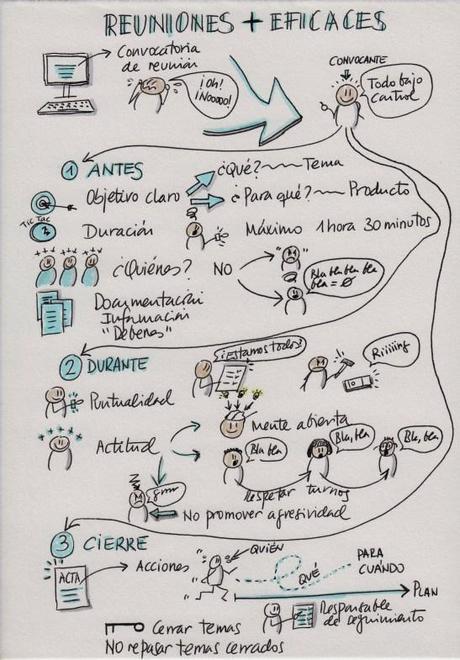 REUNIONES + EFICACES
Convocatoria
de reunión
¡Oh!
¡Nooooo!
CONVOCANTE
Todo bajo
control
1 ANTES
Objetivo claro
¿Qué? Tema
¿Para qué? Producto
TIC TAC
Duración
Máximo 1 hora 30 minutos
¿Quiénes? NO
Bla bla bla bla
bla = ø
Documentación
Información
"Deberes"
2 DURANTE
¿Estamos todos?
Riiiiing
Puntualidad
Actitud
Mente abierta
Bla, bla
Bla, bla
Bla, bla
Respetar turnos
grrr
No promover agresividad
3 CIERRE
ACTA
Acciones
QUIÉN
QUÉ
PARA
CUÁNDO
PLAN
Responsable
de seguimiento
Cerrar temas
NO repasar temas cerrados